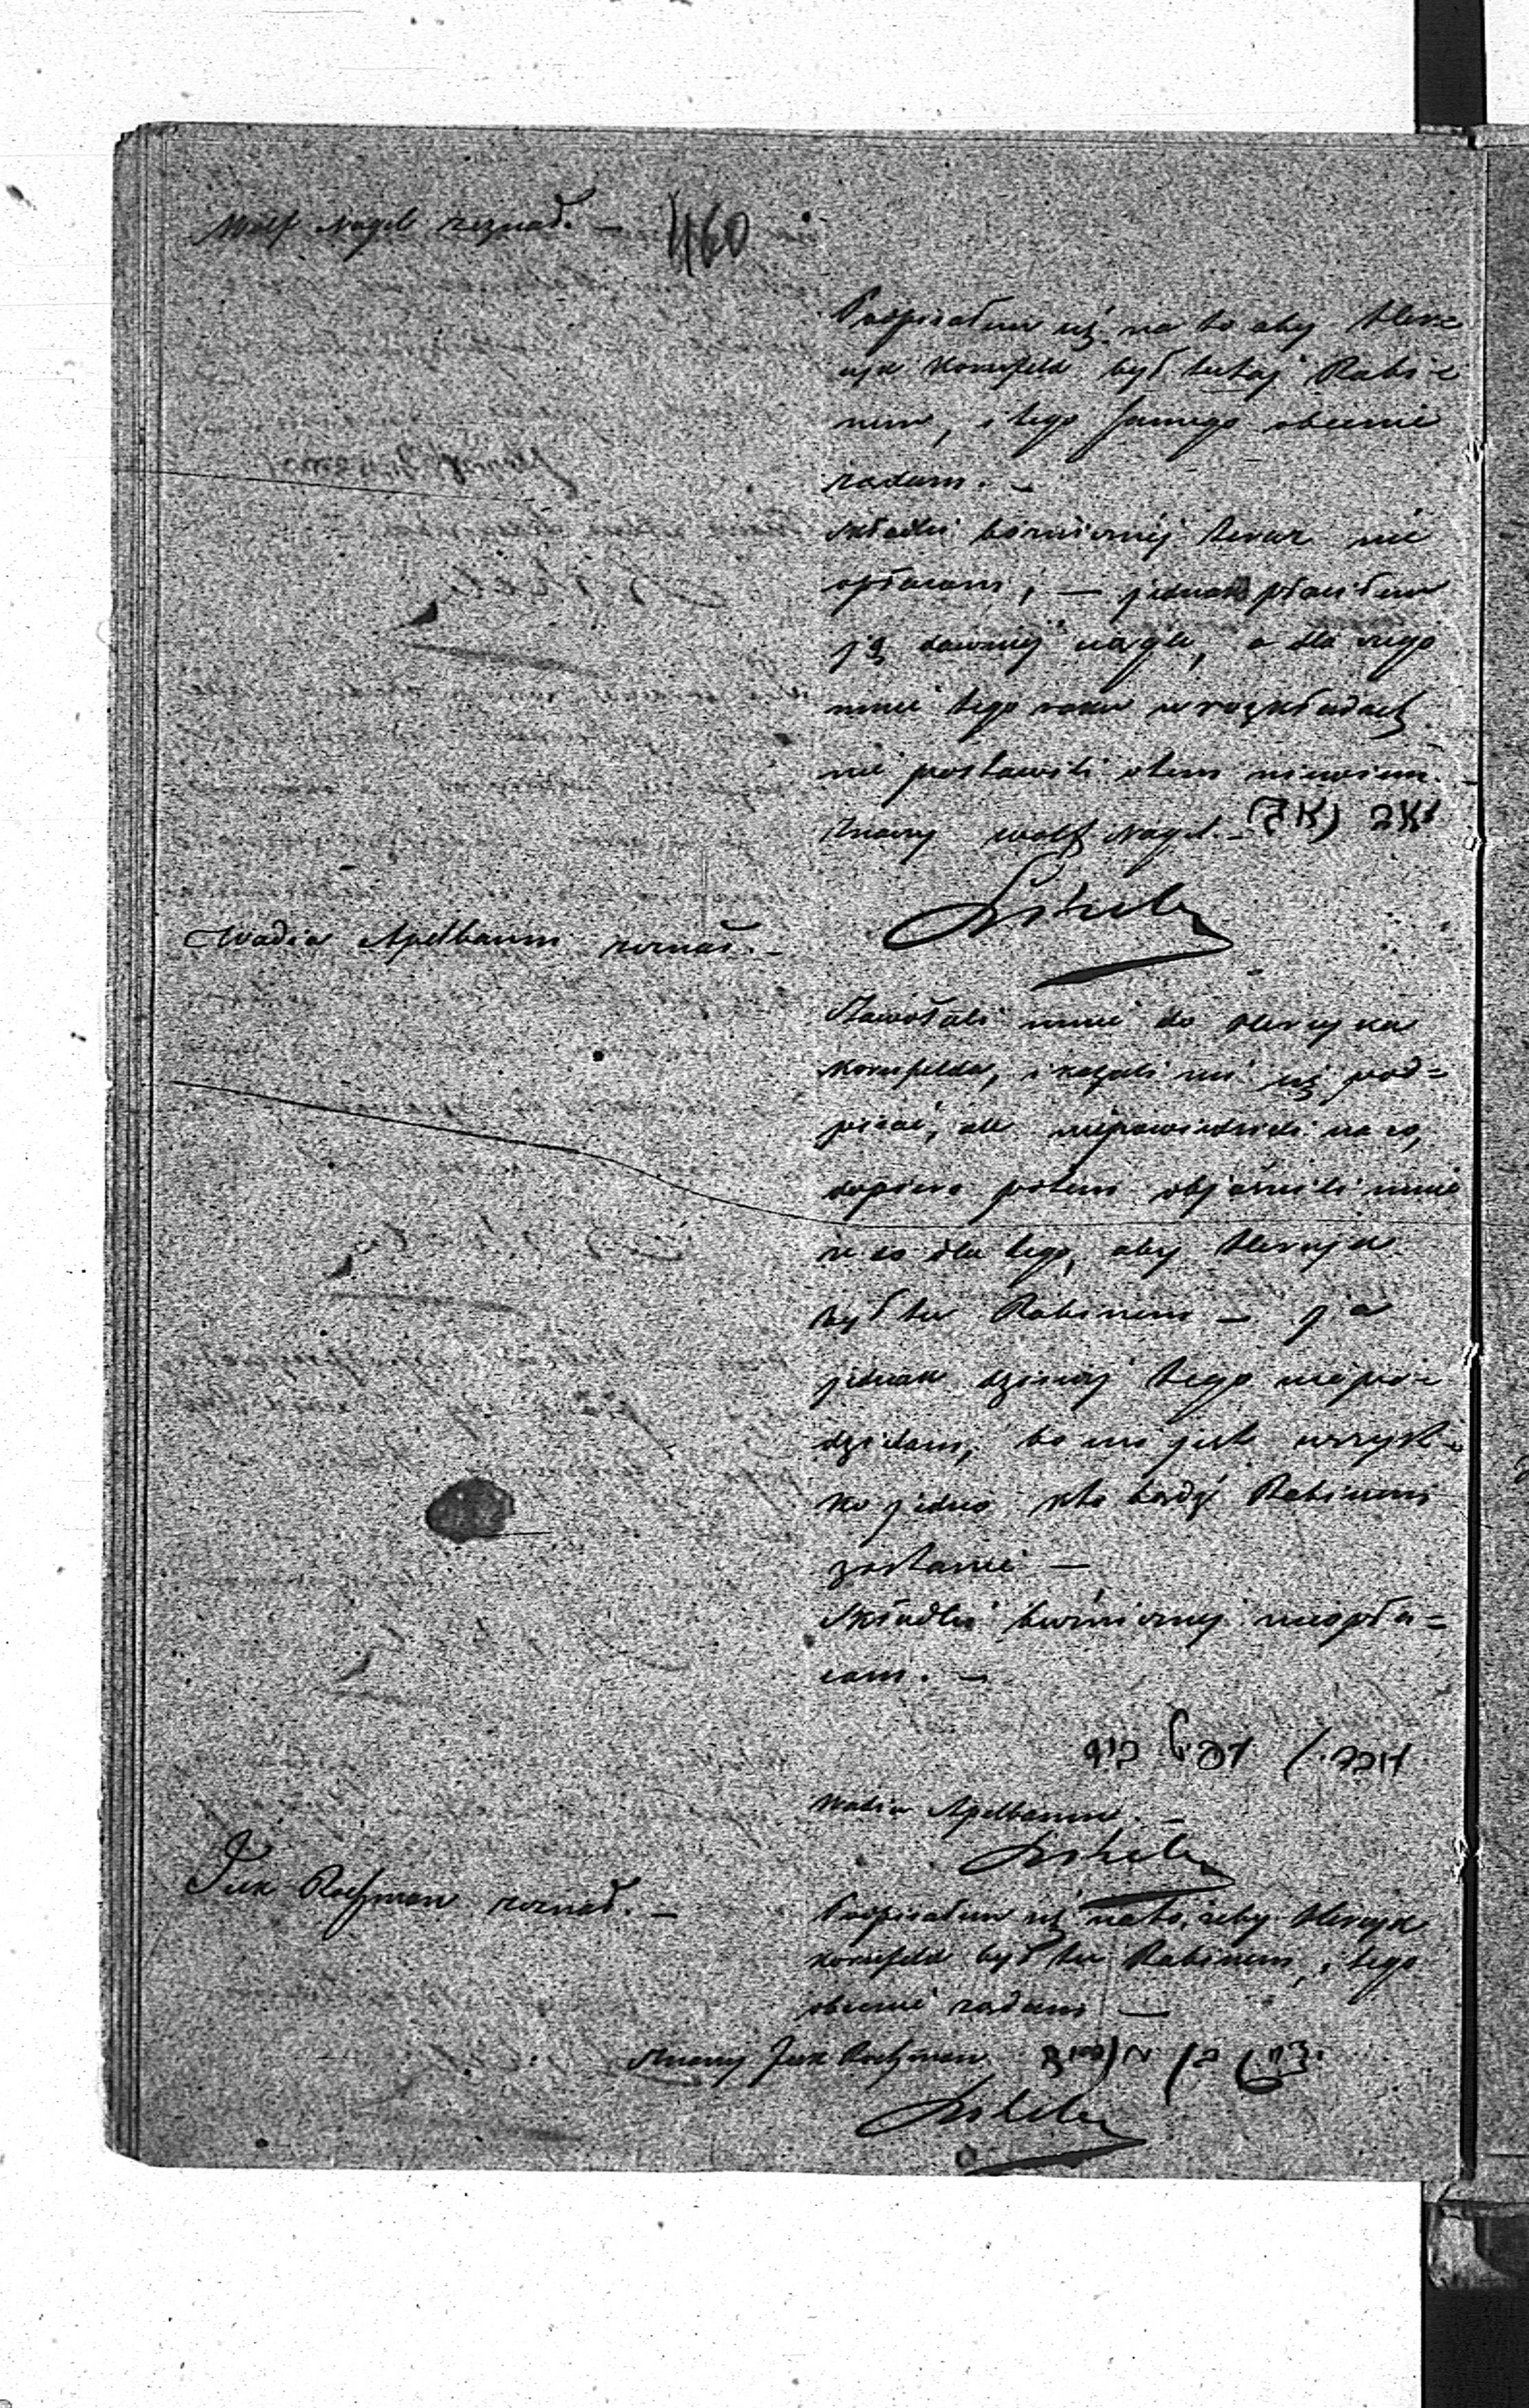 Wolf Nagel zeznał. — 460
Podpisałem się na to aby Her=
szyk Kornfeld był tutaj Rabi=
nem, i tego samego obecnie
żądam. —
składki bożnicznéj teraz nie
opłacam, — jednak płaciłem
ją dawniéj ciągle, a dla czego
mnie tego roku w rozkładach
nie postawili otem niewiem. —
Znany Wolf Nagel —
Wadia Apelbaum zeznał. —
Zawołali mnie do Herszyka
Kornfelda, i kazali mi się pod=
pisać, ale niepowiedzieli na co,
dopiero potem objaśnili mnie
że to dla tego, aby Herszyk
był tu Rabinem — ja
jednak dzisiaj tego niepo=
dzielam, bo mi jest wszyst=
ko jedno kto bądź Rabinem
zostanie —
Składki bużnicznej nieopła=
cam. —
Wadia Apelbaum. —
Icek Rochman zeznał. —
Podpisałem się na to, żeby Herszyk
Kornfeld był tu Rabinem, i tego
obecnie żądam —
Znany Icek Rochman